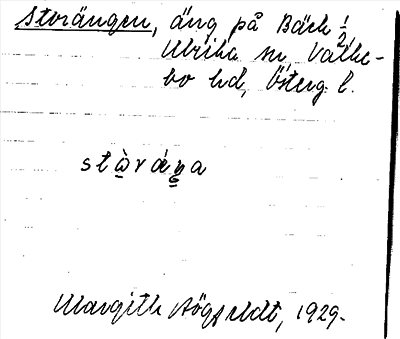 Storängen, äng på Bäck 1/2,
Ulrika sn, Valke-
bo hd, Österg. l.
Margith Högfeldt, 1929.